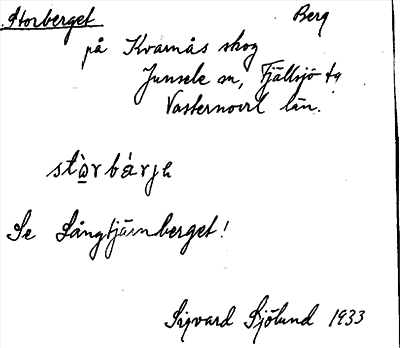 Storberget Berg
på Kvarnås skog
Junsele sn, Fjällsjö tg
Västernorrl län.
stò̱rbárjə
Se Långtjärnberget!
Sigvard Sjölund 1933